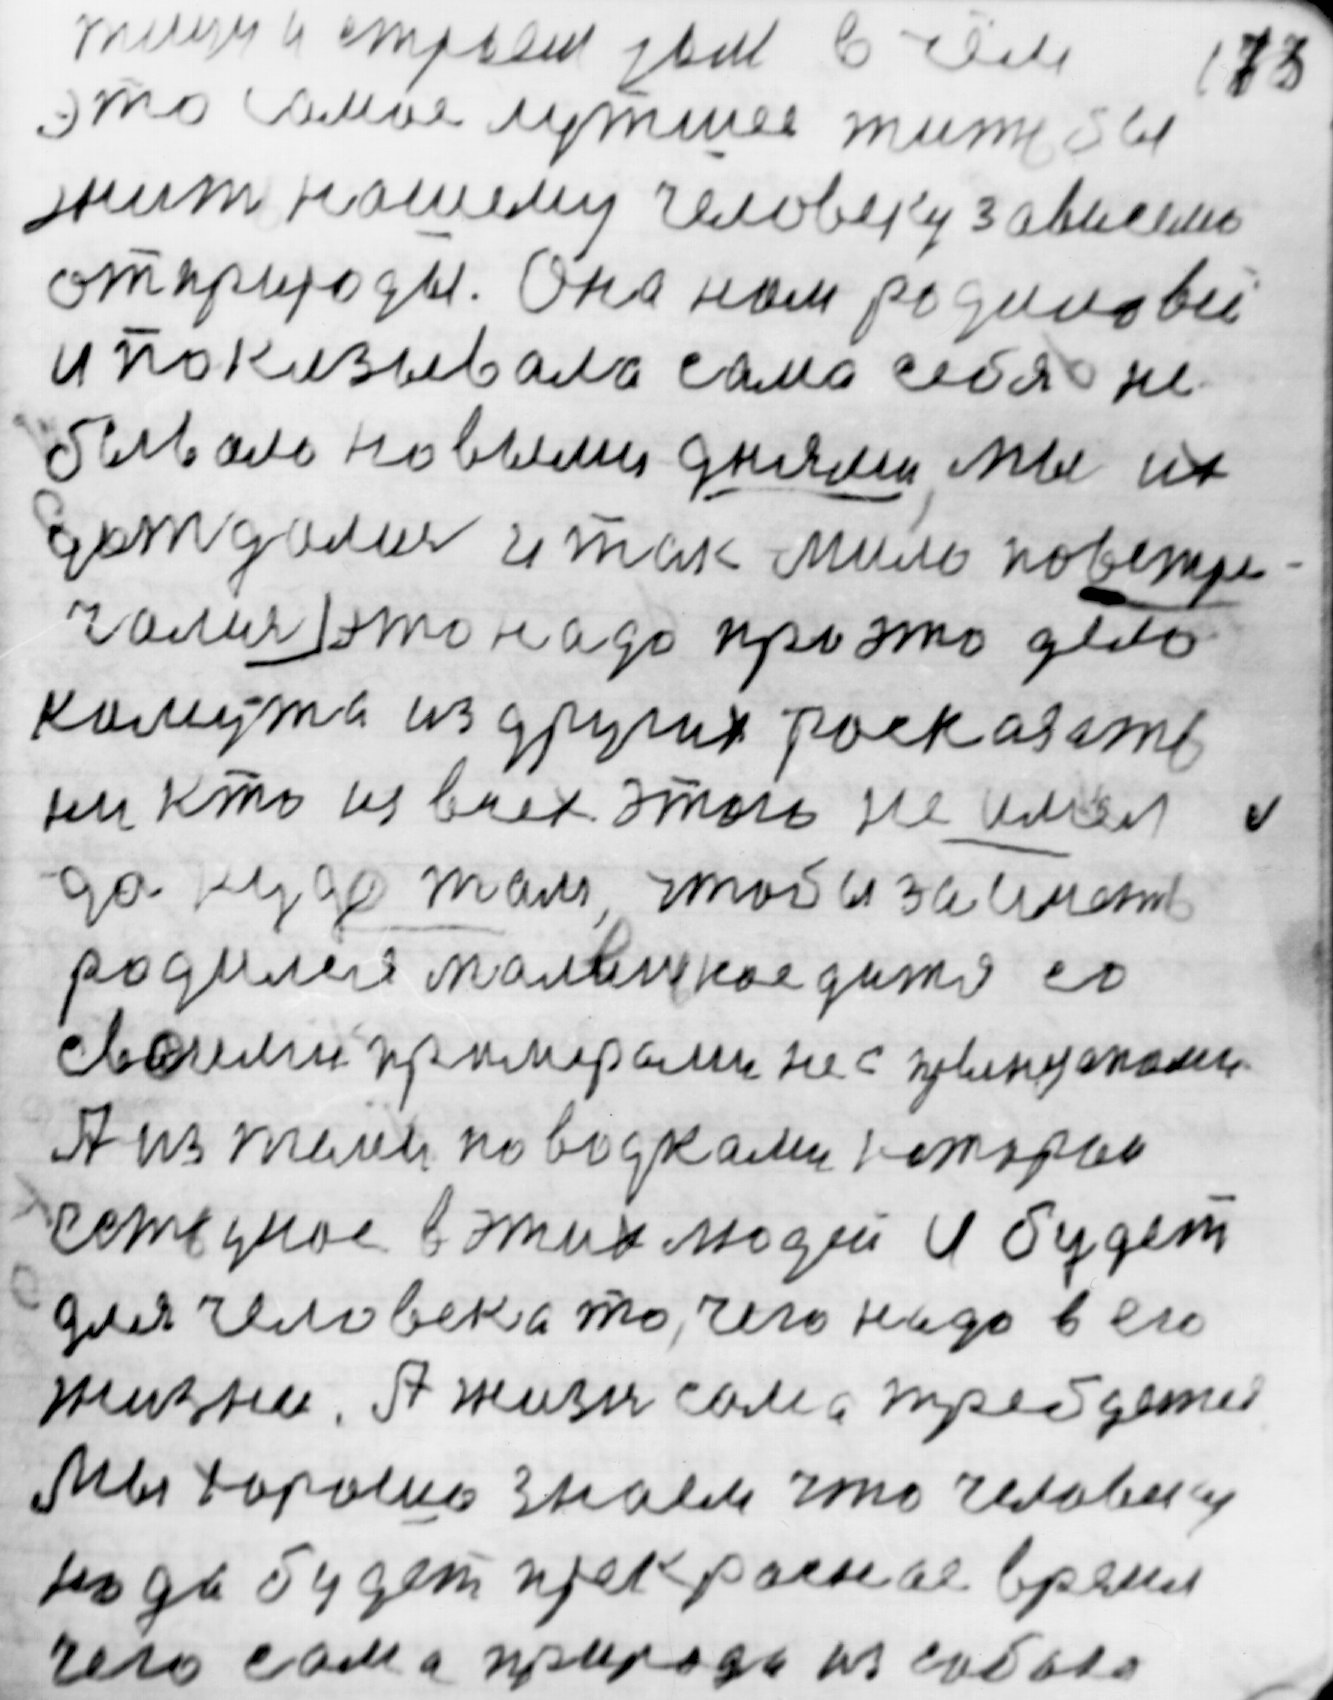 и строем дом в чем 173
это самое лутшее жить бы
жит нашему человеку зависемо
от природы. Она нам родиловы
и показывала сама себя не
бывало новыми днями, мы их
дождалия и так мило повстре-
чалия) это надо про это дело
комута из других росказать
ни кто из всех этого не имел
да куда там, чтобы заиметь
родился маленкое дитя со
своими примерами не с
А из теми поводками которое
в этих людей и будет
для человека то, чего надо в его
жизни. А жизн сама требуется
Мы хорошо знаем что человеку
надо будет прекрасное время
чего сама природа из собою